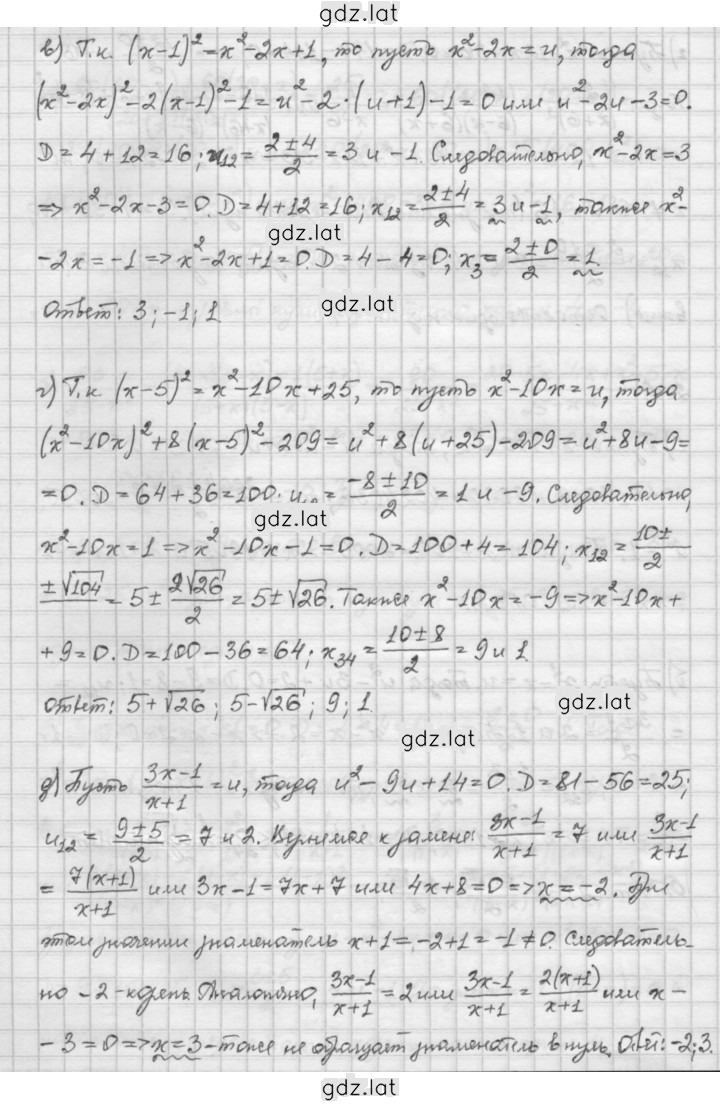 gdz.lat
в) Т.к. (x-1)² = x²-2x+1, то пусть x²-2x = u, тогда
(x²-2x)²-2(x-1)²-1 = u²-2·(u+1)-1 = 0 или u²-2u-3=0.
D = 4+12 = 16; u₁₂ = (2±4)/2 = 3 и -1. Следовательно, x²-2x=3
=> x²-2x-3=0. D=4+12=16; x₁₂ = (2±4)/2 = 3 и -1, также x²-
gdz.lat
-2x=-1 => x²-2x+1=0. D=4-4=0; x₃ = (2±0)/2 = 1
Ответ: 3; -1; 1
gdz.lat
г) Т.к. (x-5)² = x²-10x+25, то пусть x²-10x = u, тогда
(x²-10x)²+8(x-5)²-209 = u²+8(u+25)-209 = u²+8u-9=
=0. D=64+36=100. u₁₂ = (-8±10)/2 = 1 и -9. Следовательно,
gdz.lat
x²-10x=1 => x²-10x-1=0. D=100+4=104; x₁₂ = (10±
±√104)/2 = 5±2√26/2 = 5±√26. Также x²-10x=-9 => x²-10x+
+9=0. D=100-36=64; x₃₄ = (10±8)/2 = 9 и 1
Ответ: 5+√26; 5-√26; 9; 1.
gdz.lat
gdz.lat
д) Пусть (3x-1)/(x+1) = u, тогда u²-9u+14=0. D=81-56=25;
u₁₂ = (9±5)/2 = 7 и 2. Вернемся к замене: (3x-1)/(x+1) = 7 или (3x-1)/(x+1)
= 7(x+1)/(x+1) или 3x-1=7x+7 или 4x+8=0 => x=-2. При
этом значении знаменатель x+1=-2+1=-1≠0. Следователь-
но -2 - корень. Аналогично, (3x-1)/(x+1) = 2 или (3x-1)/(x+1) = 2(x+1)/(x+1) или x-
-3=0 => x=3 - тоже не обращает знаменатель в нуль. Ответ: -2; 3.
gdz.lat